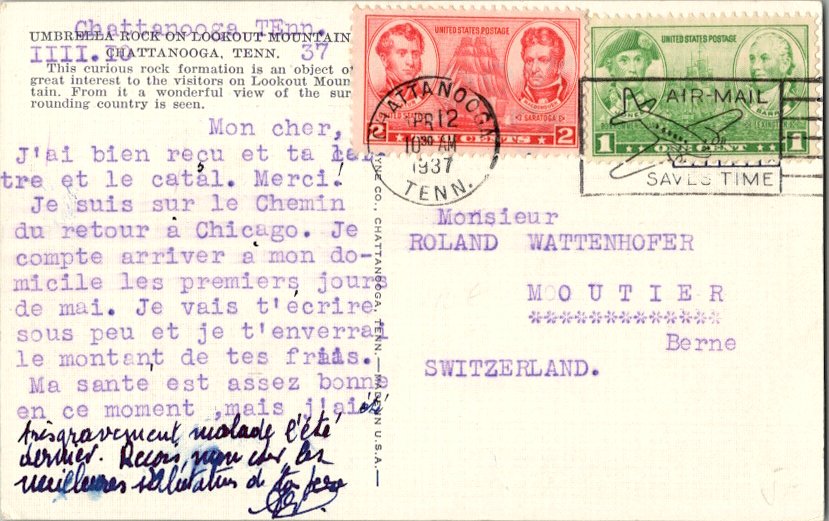 Chattanooga TEnn.
UMBRELLA ROCK ON LOOKOUT MOUNTAIN
IIII.I0 37
CHATTANOOGA, TENN.
This curious rock formation is an object of
great interest to the visitors on Lookout Moun
tain. From it a wonderful view of the sur
rounding country is seen.
Mon cher,
J'ai bien reçu et ta let
tre et le catal. Merci.
Je suis sur le Chemin
du retour à Chicago. Je
compte arriver a mon do-
micile les premiers jours
de mai. Je vais t'écrire
sous peu et je t'enverrai
le montant de tes frais.
Ma sante est assez bonne
en ce moment ,mais j'ai été
très gravement malade l'été
dernier. Reçois, mon cher les
meilleures salutations de ton
UNITED STATES POSTAGE
2 CENTS 2
SARATOGA
UNITED STATES POSTAGE
1 ONE CENT 1
CHATTANOOGA
APR 12
10 30 AM
1937
TENN.
AIR-MAIL
SAVES TIME
CO., CHATTANOOGA, TENN.—MADE IN U.S.A.—
Monsieur
ROLAND WATTENHOFER
MOUTIER
*************
Berne
SWITZERLAND.